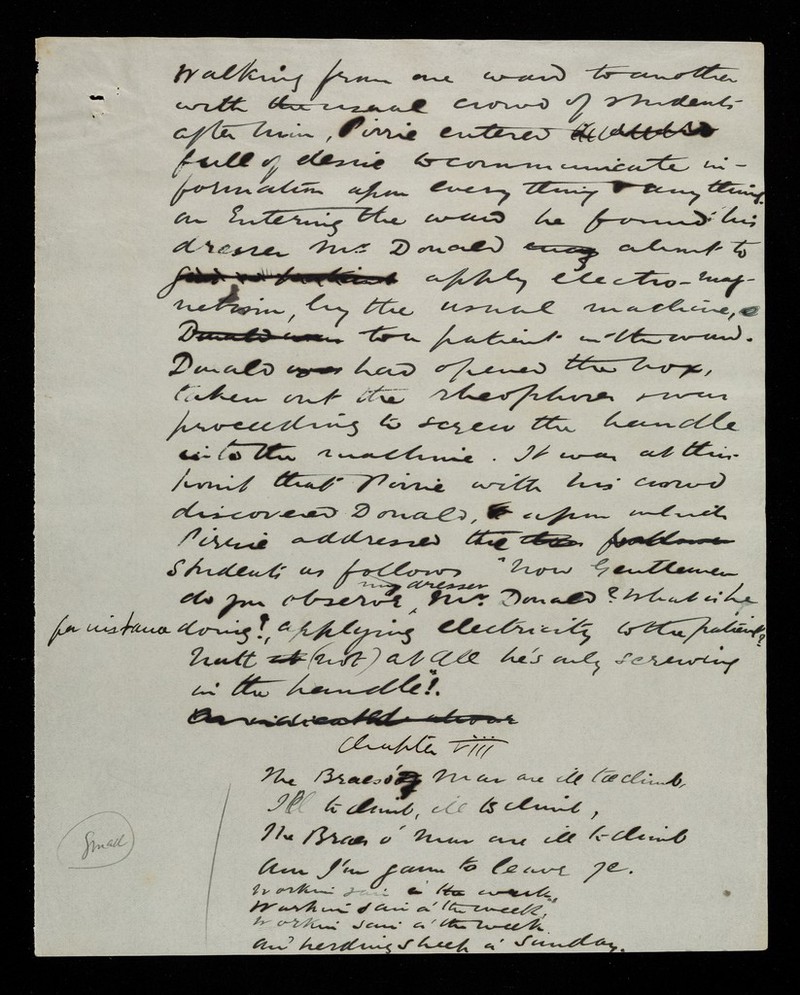 Walking from one ward to another
with the usual crowd of students
after him, Pirrie entered
full of desire to communicate in-
formation upon every thing & any thing.
on Entering the ward he found his
dresser Mr. Donald about to
apply electro-mag-
netism, by the usual machine,
Donald was to a patient in the ward.
Donald was had opened the box,
taken out the rheophores & was
proceeding to screw the handle
into the machine. It was at this
point that Pirrie with his crowd
discovered Donald, upon which
Pirrie addressed the follow
students as follows "Now Gentlemen
my dresser
do you observe, Mr. Donald? What is he
for instance doing?, applying electricity to the patient?
Natt at (not) at all he's only screwing
in the handle"!.
as indicated above
Chapter VIII
The Braes o' Mar are ill to climb,
Ill to climb, ill to climb,
The Braes o' Mar are ill to climb
And I'm gaun to leave ye.
Workin sair a' the week,
Workin sair a' the week,
Workin sair a' the week
an' herding sheep a' Sunday.
Small